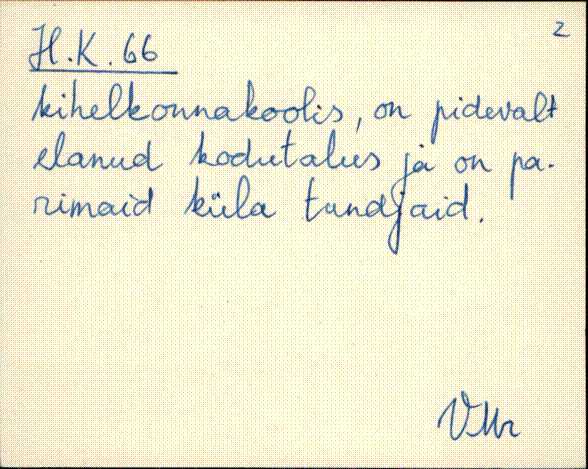 2
H.K. 66
kihelkonnakoolis, on pidevalt
elanud kodutalus ja on pa-
rimaid küla tundjaid.
VMr